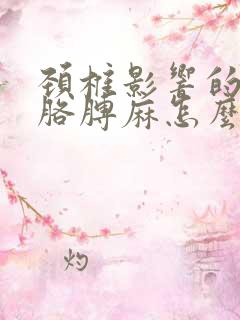 頚椎影響的
胳脾麻怎麼
灼